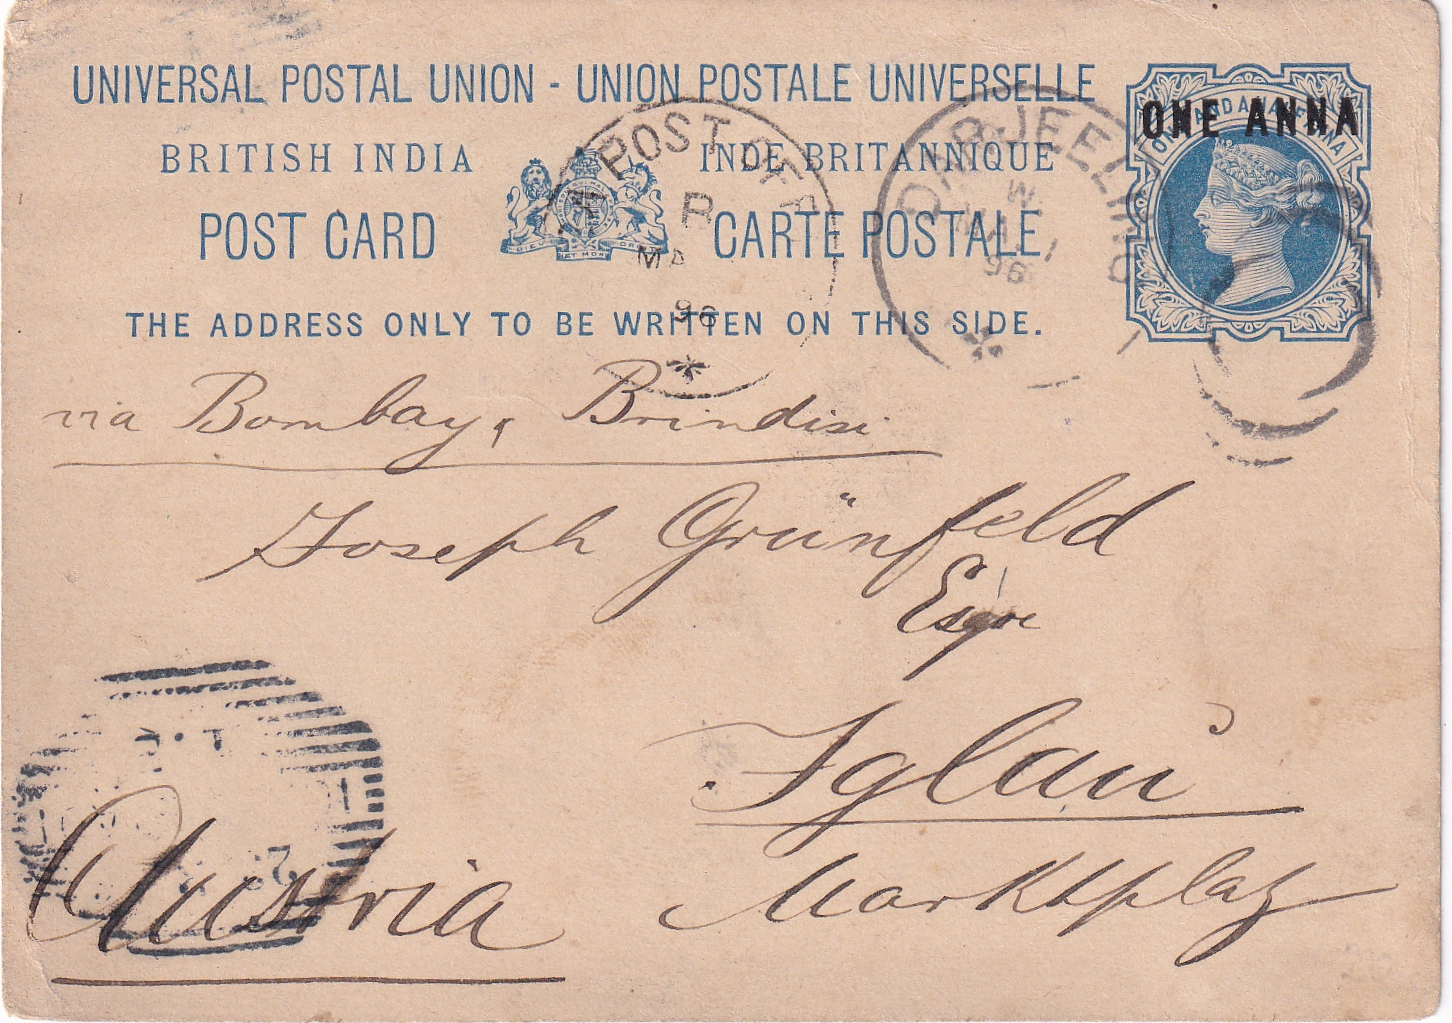 UNIVERSAL POSTAL UNION - UNION POSTALE UNIVERSELLE
BRITISH INDIA INDE BRITANNIQUE
POST CARD CARTE POSTALE
THE ADDRESS ONLY TO BE WRITTEN ON THIS SIDE.
ONE ANNA
POST OFF
B
MA
96
DARJEELING
W.
MA 1
96
via Bombay, Brindisi
Joseph Grünfeld
Esqre
Iglau
Marktplatz
Austria